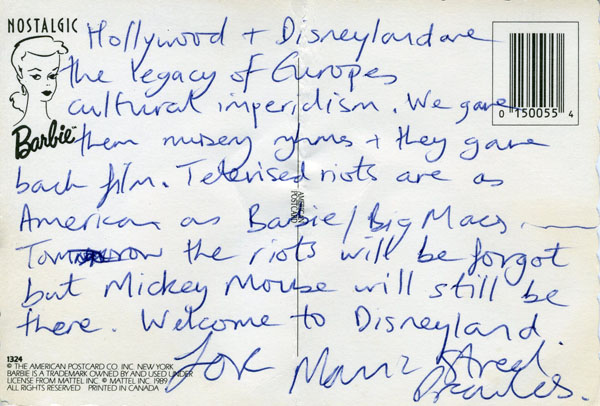 NOSTALGIC
Barbie™
Hollywood + Disneyland are
the legacy of Europes
cultural imperialism. We gave
them nursery rhymes + they gave
back film. Televised riots are as
American as Barbie/Big Macs.
Tomorrow the riots will be forgot
but Mickey Mouse will still be
there. Welcome to Disneyland.
Love Manic Street
Preachers.
0 150055 4
AMERICAN
POSTCARD
1324
© THE AMERICAN POSTCARD CO. INC. NEW YORK
BARBIE IS A TRADEMARK OWNED BY AND USED UNDER
LICENSE FROM MATTEL INC. © MATTEL INC. 1989
ALL RIGHTS RESERVED PRINTED IN CANADA